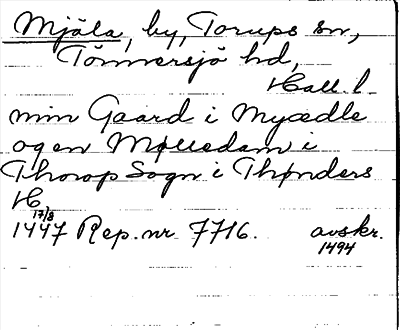 Mjäla, by, Torups sn,
Tönnersjö hd,
Hall. l.
min Gaard i Myædle
og en Mølledam i
Thorop Sogn i Thønders
H.
17/8
1447 Rep. nr 7716. avskr.
1494